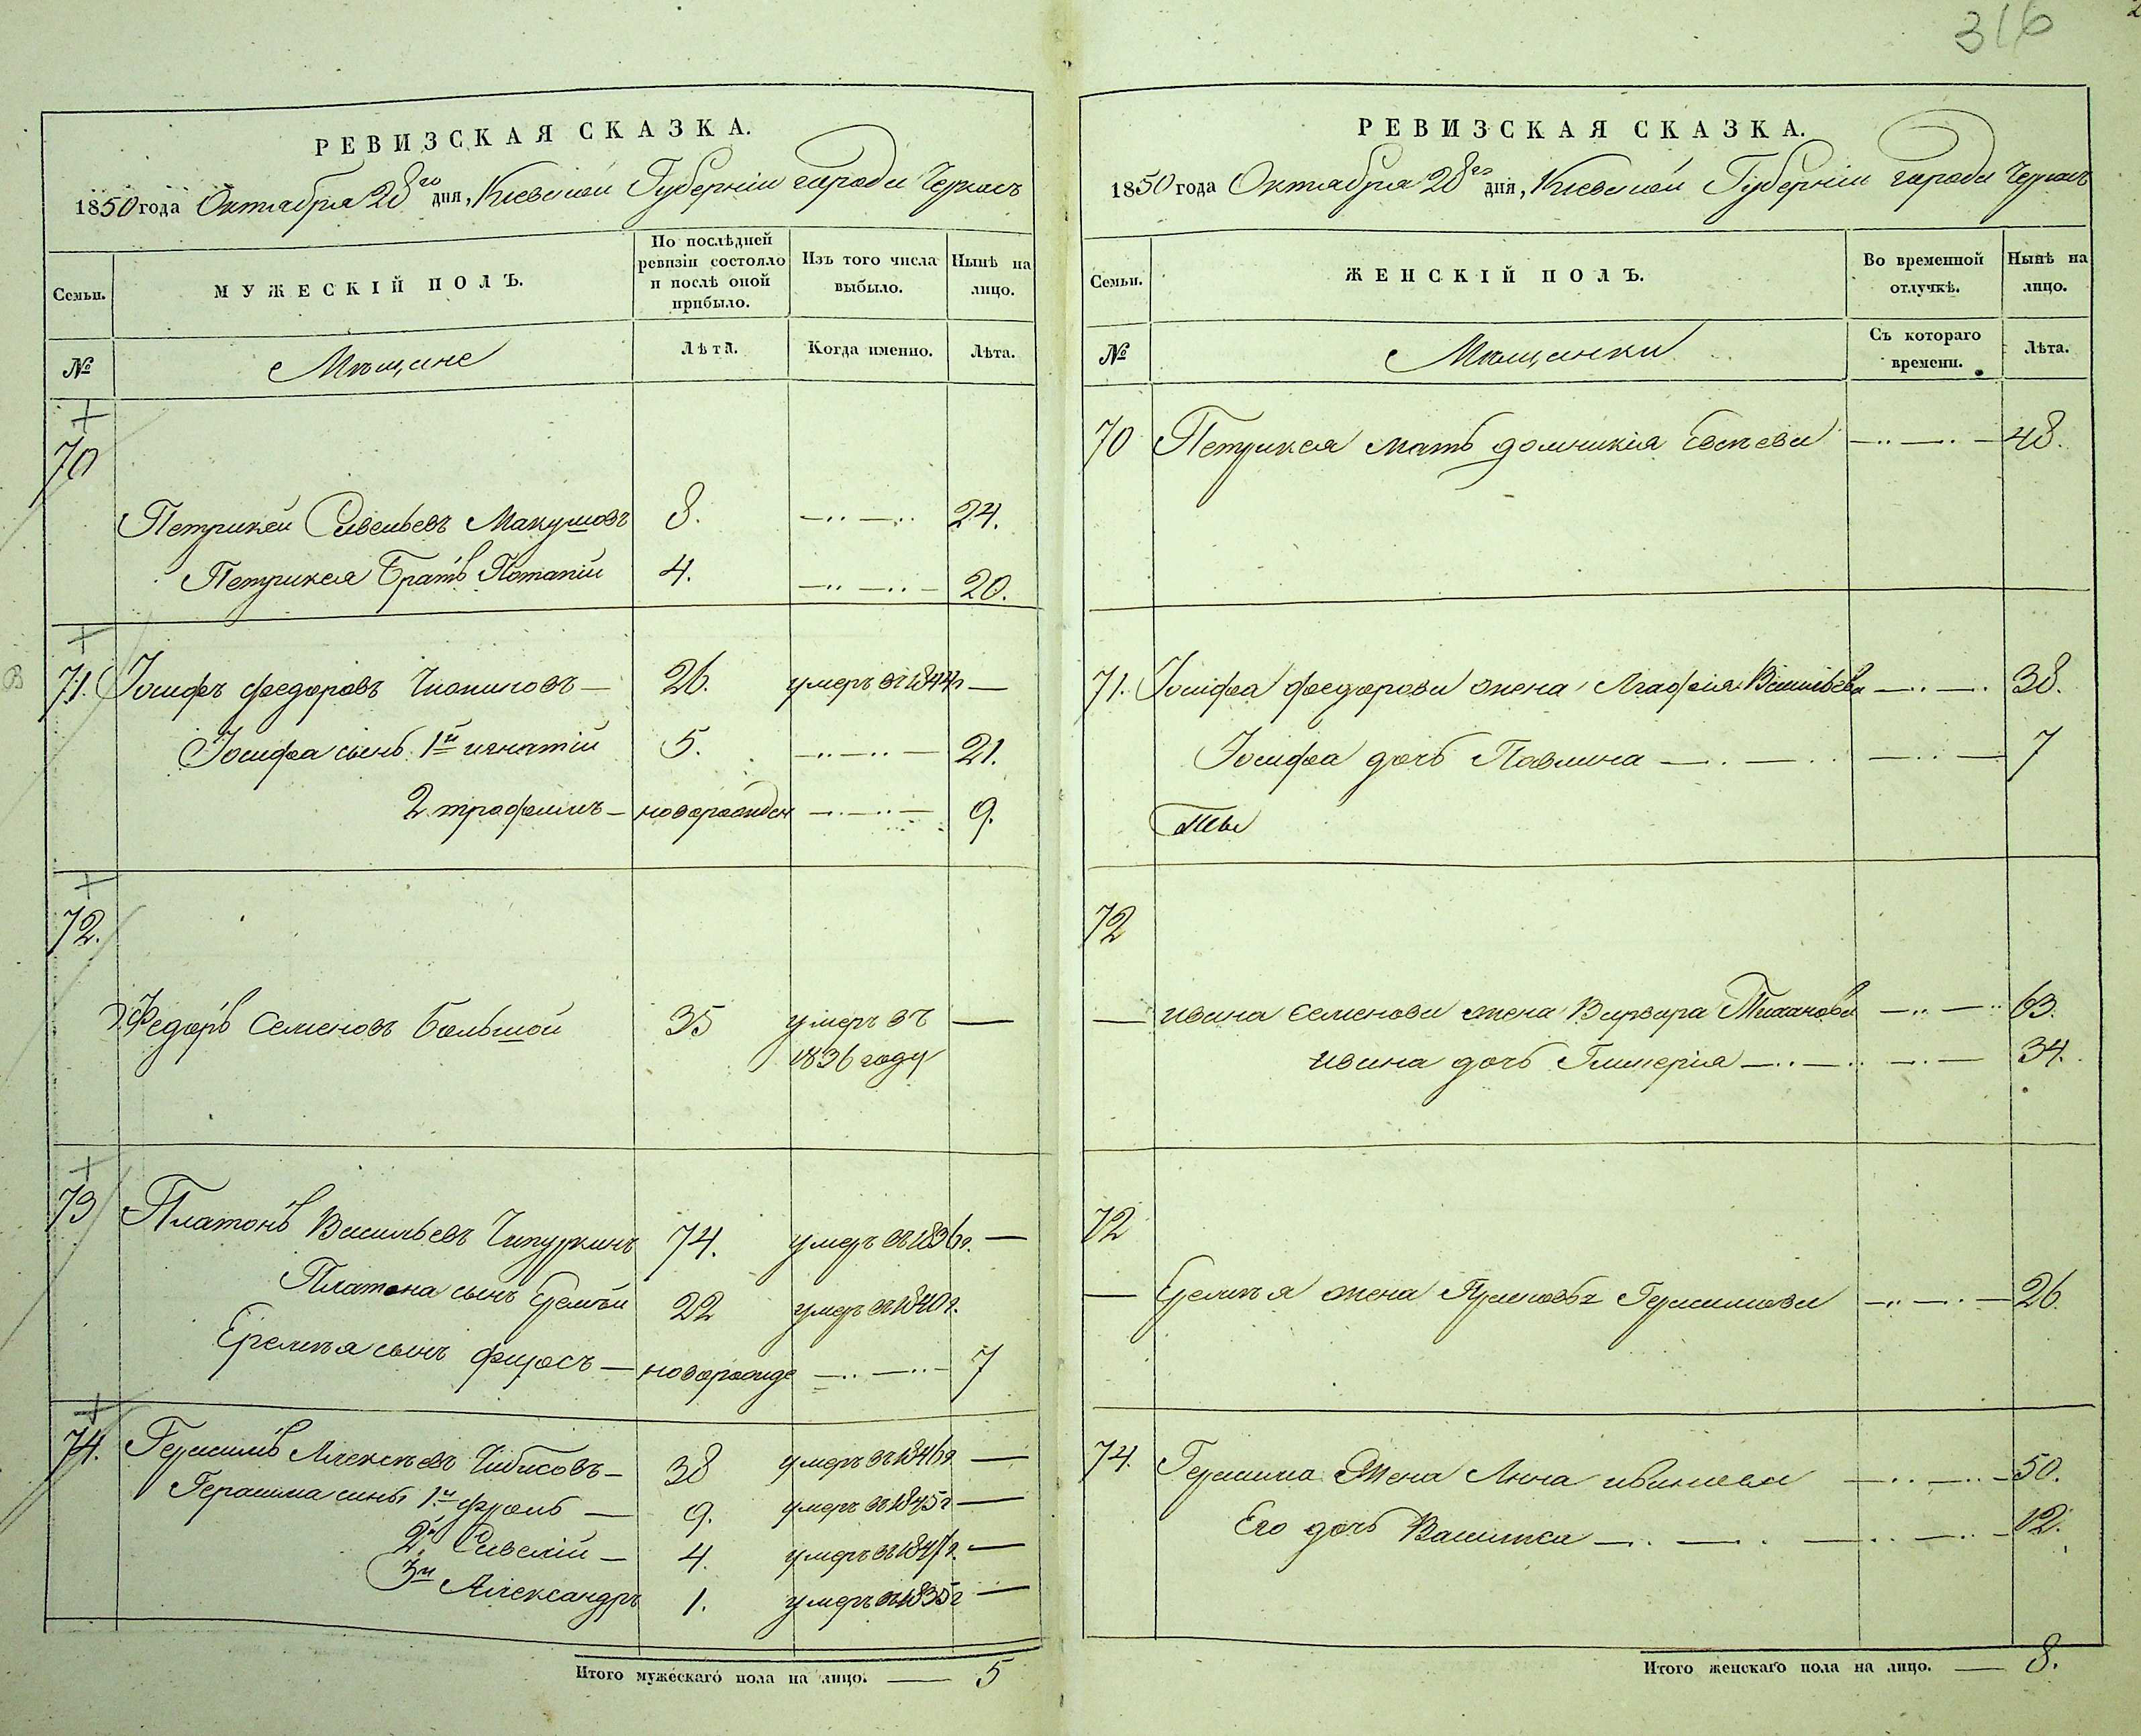 316
РЕВИЗСКАЯ СКАЗКА.
1850 года Октября 28го дня, Кіевской Губерніи города Черкасъ
Семьи.
МУЖЕСКІЙ ПОЛЪ.
По послѣдней ревизіи состояло и послѣ оной прибыло.
Изъ того числа выбыло.
Нынѣ на лицо.
№
Мѣщане
Лѣта.
Когда именно.
Лѣта.
70
Петрикей Савельевъ Макушовъ 8. 24.
Петрикея Братъ Потапій 4. 20.
71. Іосифъ Федоровъ умеръ въ 1844г 26.
Іосифа сынъ 1й игнатій 5. 21.
2 трофимъ новорожден 9.
72.
Федоръ Семеновъ большой 35 умеръ въ
1836 году
73 Платонъ Васильевъ Чипуркинъ 74. умеръ въ 1836г.
Платона сынъ Еремѣй 22 умеръ въ 1840г.
Еремѣя сынъ фирсъ новорожде 7
74. Герасимъ Алексѣевъ Чибисовъ 38 умеръ въ 1846г
Герасима сыны 1й фролъ 9. умеръ въ 1845г
2й Савелій 4. умеръ въ 1847г.
3й Александръ 1. умеръ въ 1835г
Итого мужескаго пола на лицо. 5
РЕВИЗСКАЯ СКАЗКА.
1850 года Октября 28го дня, Кіевской Губерніи города Черкасъ
Семьи.
ЖЕНСКІЙ ПОЛЪ.
Во временной отлучкѣ.
Нынѣ на лицо.
№
Мѣщанки
Съ котораго времени.
Лѣта.
70 Петрикея мать домникія 48.
71. Іосифа федорова жена Агафія Васильева 38.
Іосифа дочь Павлина 7
72
ивана семенова жена Варвара 63.
ивана дочь Гликерія 34.
72
Еремѣя жена Герасимова 26.
74. Герасима Жена Анна иванова 50.
Его дочь Васитка 12.
Итого женскаго пола на лицо. 8.